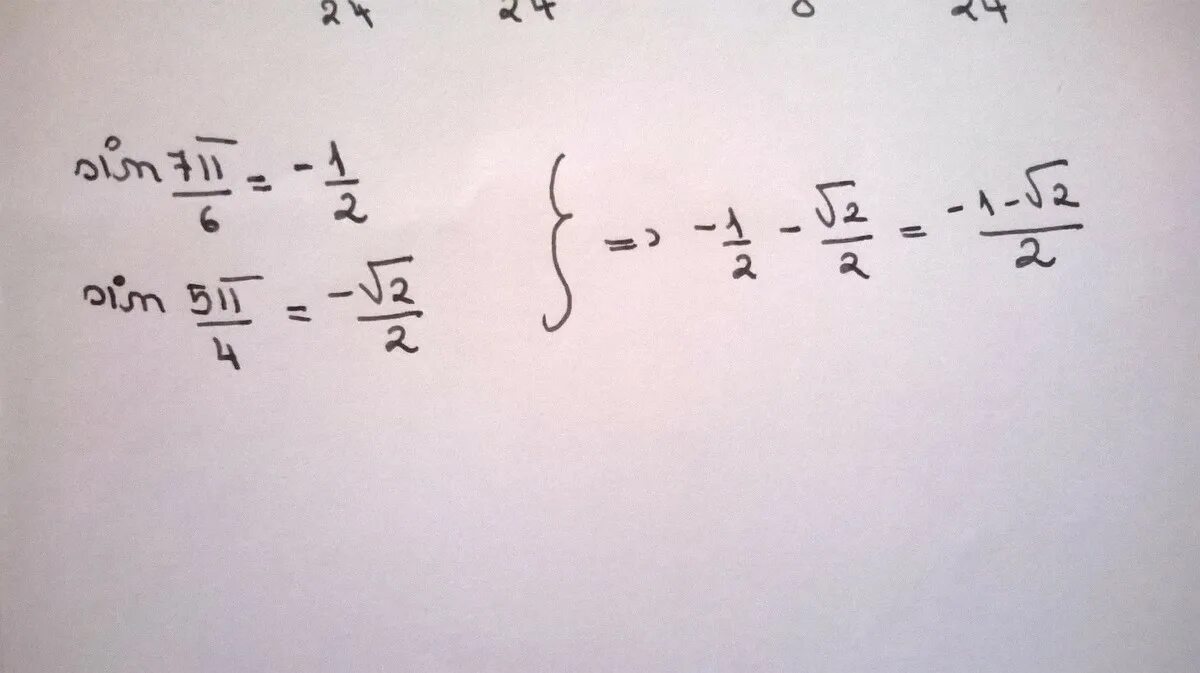 24 24 24
sin 7π/6 = -1/2
sin 5π/4 = -√2/2
} => -1/2 - √2/2 = -1-√2/2